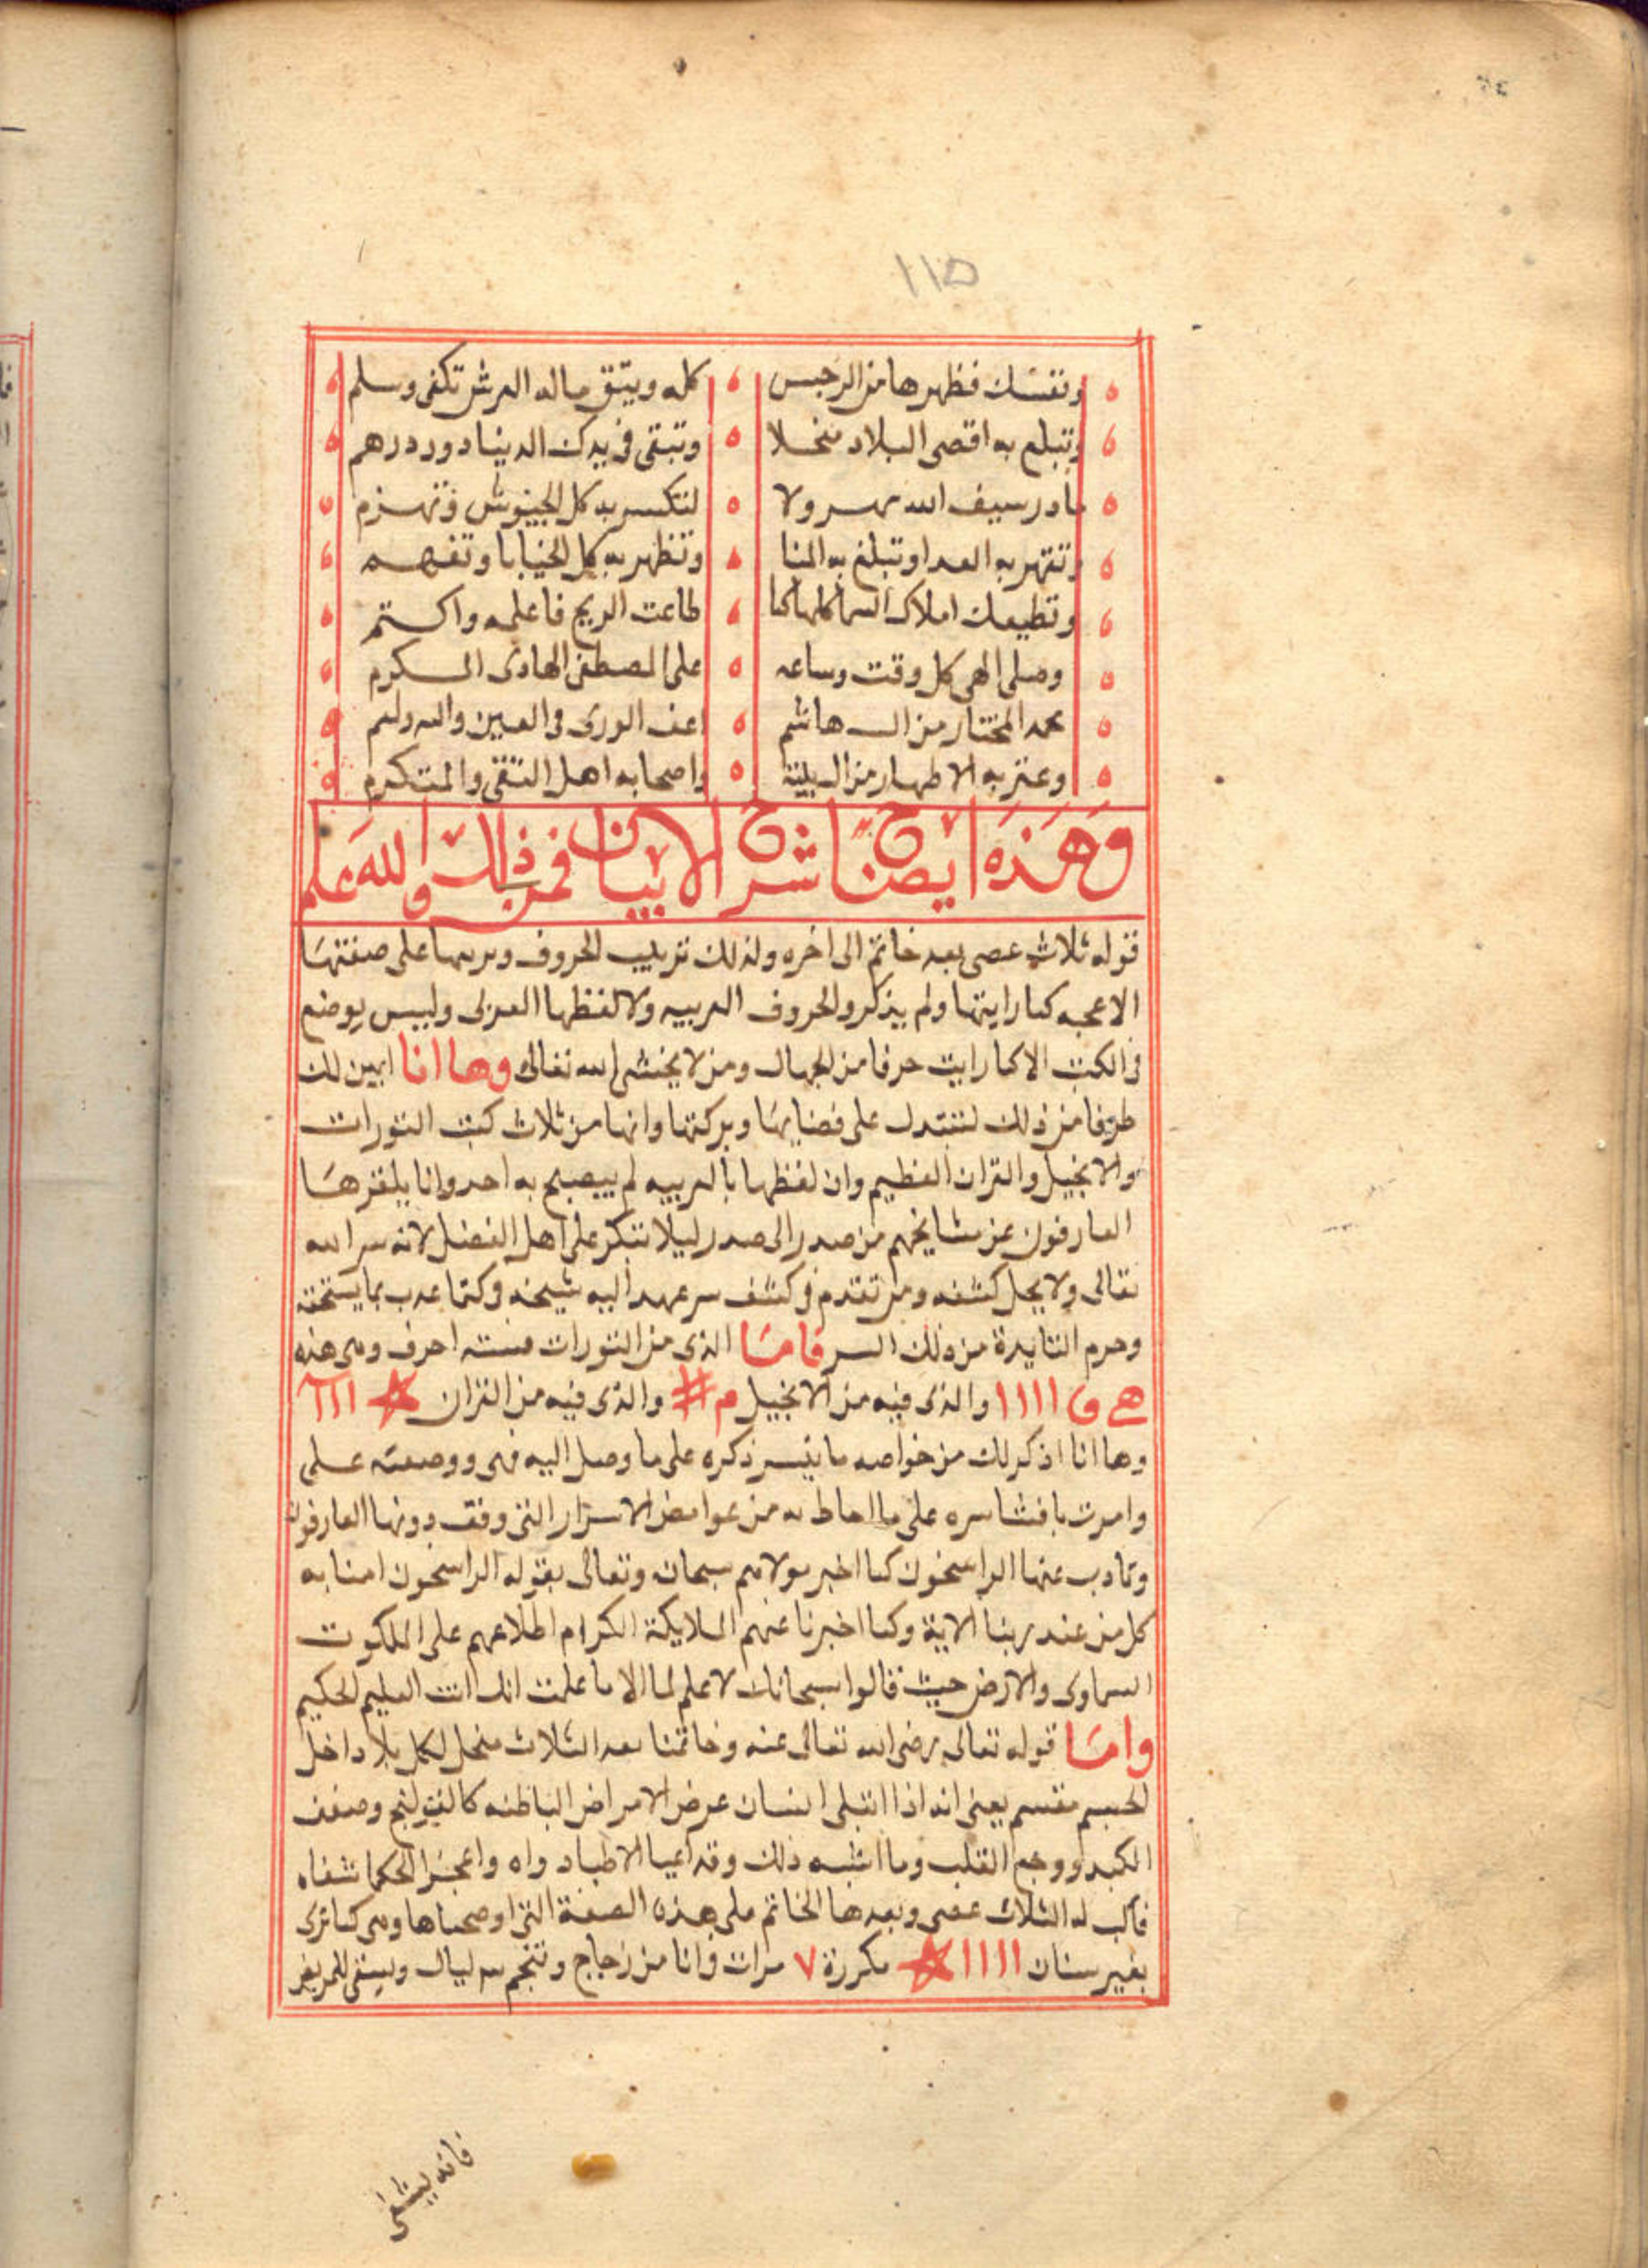 ١١٥
ونفسك فظهرها من الرجس كله ويتق ماله العرش تكفى وسلم
وتبلع به اقصى البلاد وتبقى فى يدك الدينا دور درهم
سيف الله ولا لتكسر به كل الجيوش وتهزم
وتقهر به العدا وتبلغ به المنا وتظهر به كل الخبايا وتفهم
وتطيعك املاك السما كلها كما طاعت الريح فاعلمه واكتم
وصلى الهى كل وقت وساعه على المصطفى الهادى المكرم
محمد المختار من ال هاشم الورى
وعتربه الاطهار من واصحابه اهل التقى والمتكرم
وهذه ايضا شرح الابيان فمن ذلك والله علم
قوله ثلاث عصى بعد خاتم الى اخره ولذلك تربيب الحروف على صفتها
الاعجمه كما رايتها ولم يذكرو الحروف العربيه ولا لفظها العربى وليس يوضع
فى الكتب الا كما رايت حرفا من الجهال ومن لا يخشى الله تعالى وها انا ابين لك
طرفا من ذلك لتستدل على فضايها وبركتها وانها من ثلاث كتب التورات
والانجيل والقران العظيم وان لفظها بالعربيه لم يبصبح به احد وانا يلقزها
العارفون عن مشايخهم من صدر الى صدر ليلا تنكر على اهل الفضل لانه سر الله
تعالى ولا يحل كشفه ومن تقدم فى كشف سر عهد اليه شيخه بما يستحقه
وحرم الفايدة من ذلك السر فاما الذى من التورات فسته احرف وهى هذه
١١١١ والذى فيه من الانجيل م # والذى فيه من القران ☆ ااا
وها انا اذكر لك من خواصه ما تيسر ذكره على ما وصل اليه فهمى ووصعته علمى
وامرت بافشا سره على ما احاط به من غوامض الاسرار التى وقف دونها العارفون
وتادب عنها الراسخون كما اخبر مولاهم سبحان وتعالى بقوله الراسخون امنا به
كل من عند ربنا الاية وكما اخبرنا عنهم الملايكة الكرام اطلاعهم على الملكوت
السماوى والارض حيث قالوا سبحانك لا علم لما الا ما علمت انك انت العليم الحكيم
واما قوله تعالى رضى الله تعالى عنه وخاتمنا بعد الثلاث منحل لكل بلا داخل
الجسم مقسم يعنى انه اذا ابتلى انسان عرض الامراض الباطنه كالقولنج وضعف
الكبد ووجع القلب وما اشبه ذلك وقد اعيا الاطباء دواه واعجز الحكما شفاه
فاكتب له الثلاث عصى وبعدها الخاتم على هذه الصفة التى اوضحناها وهى كما ترى
بغير سنان ١١١١ ☆ مكررة ٧ مرات فى انا من زجاج وتنجم ٣ ليال ويسقى للمريض
فانه يشفى